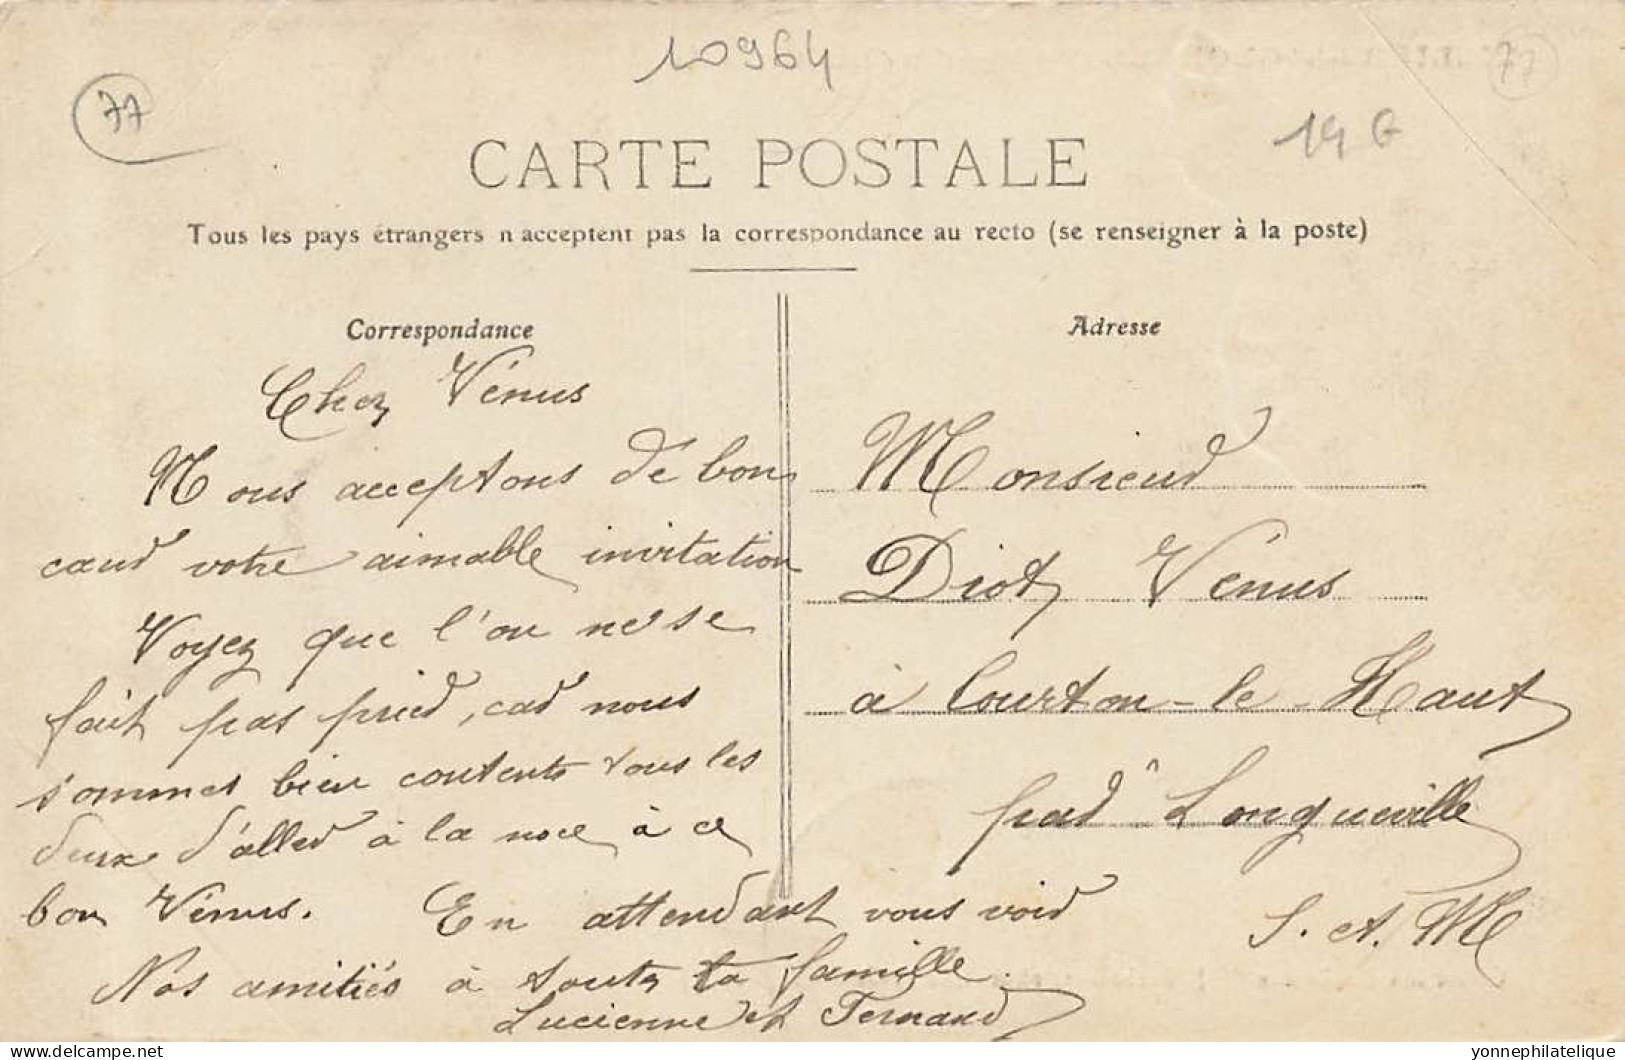 10964
77
77
19 G
CARTE POSTALE
Tous les pays étrangers n'acceptent pas la correspondance au recto (se renseigner à la poste)
Correspondance
Adresse
Chez Vénus
Nous acceptons de bon
cœur votre aimable invitation
Voyez que l'on ne se
fait pas prier, car nous
sommes bien contents tous les
deux d'aller à la noce à ce
bon Vénus. En attendant vous voir
Nos amitiés à toute ta famille.
Lucienne et Fernand
Monsieur
Diot Vénus
à Courton-le-Haut
par Longueville
S. et. M
yonnephilatelique - delcampe.net